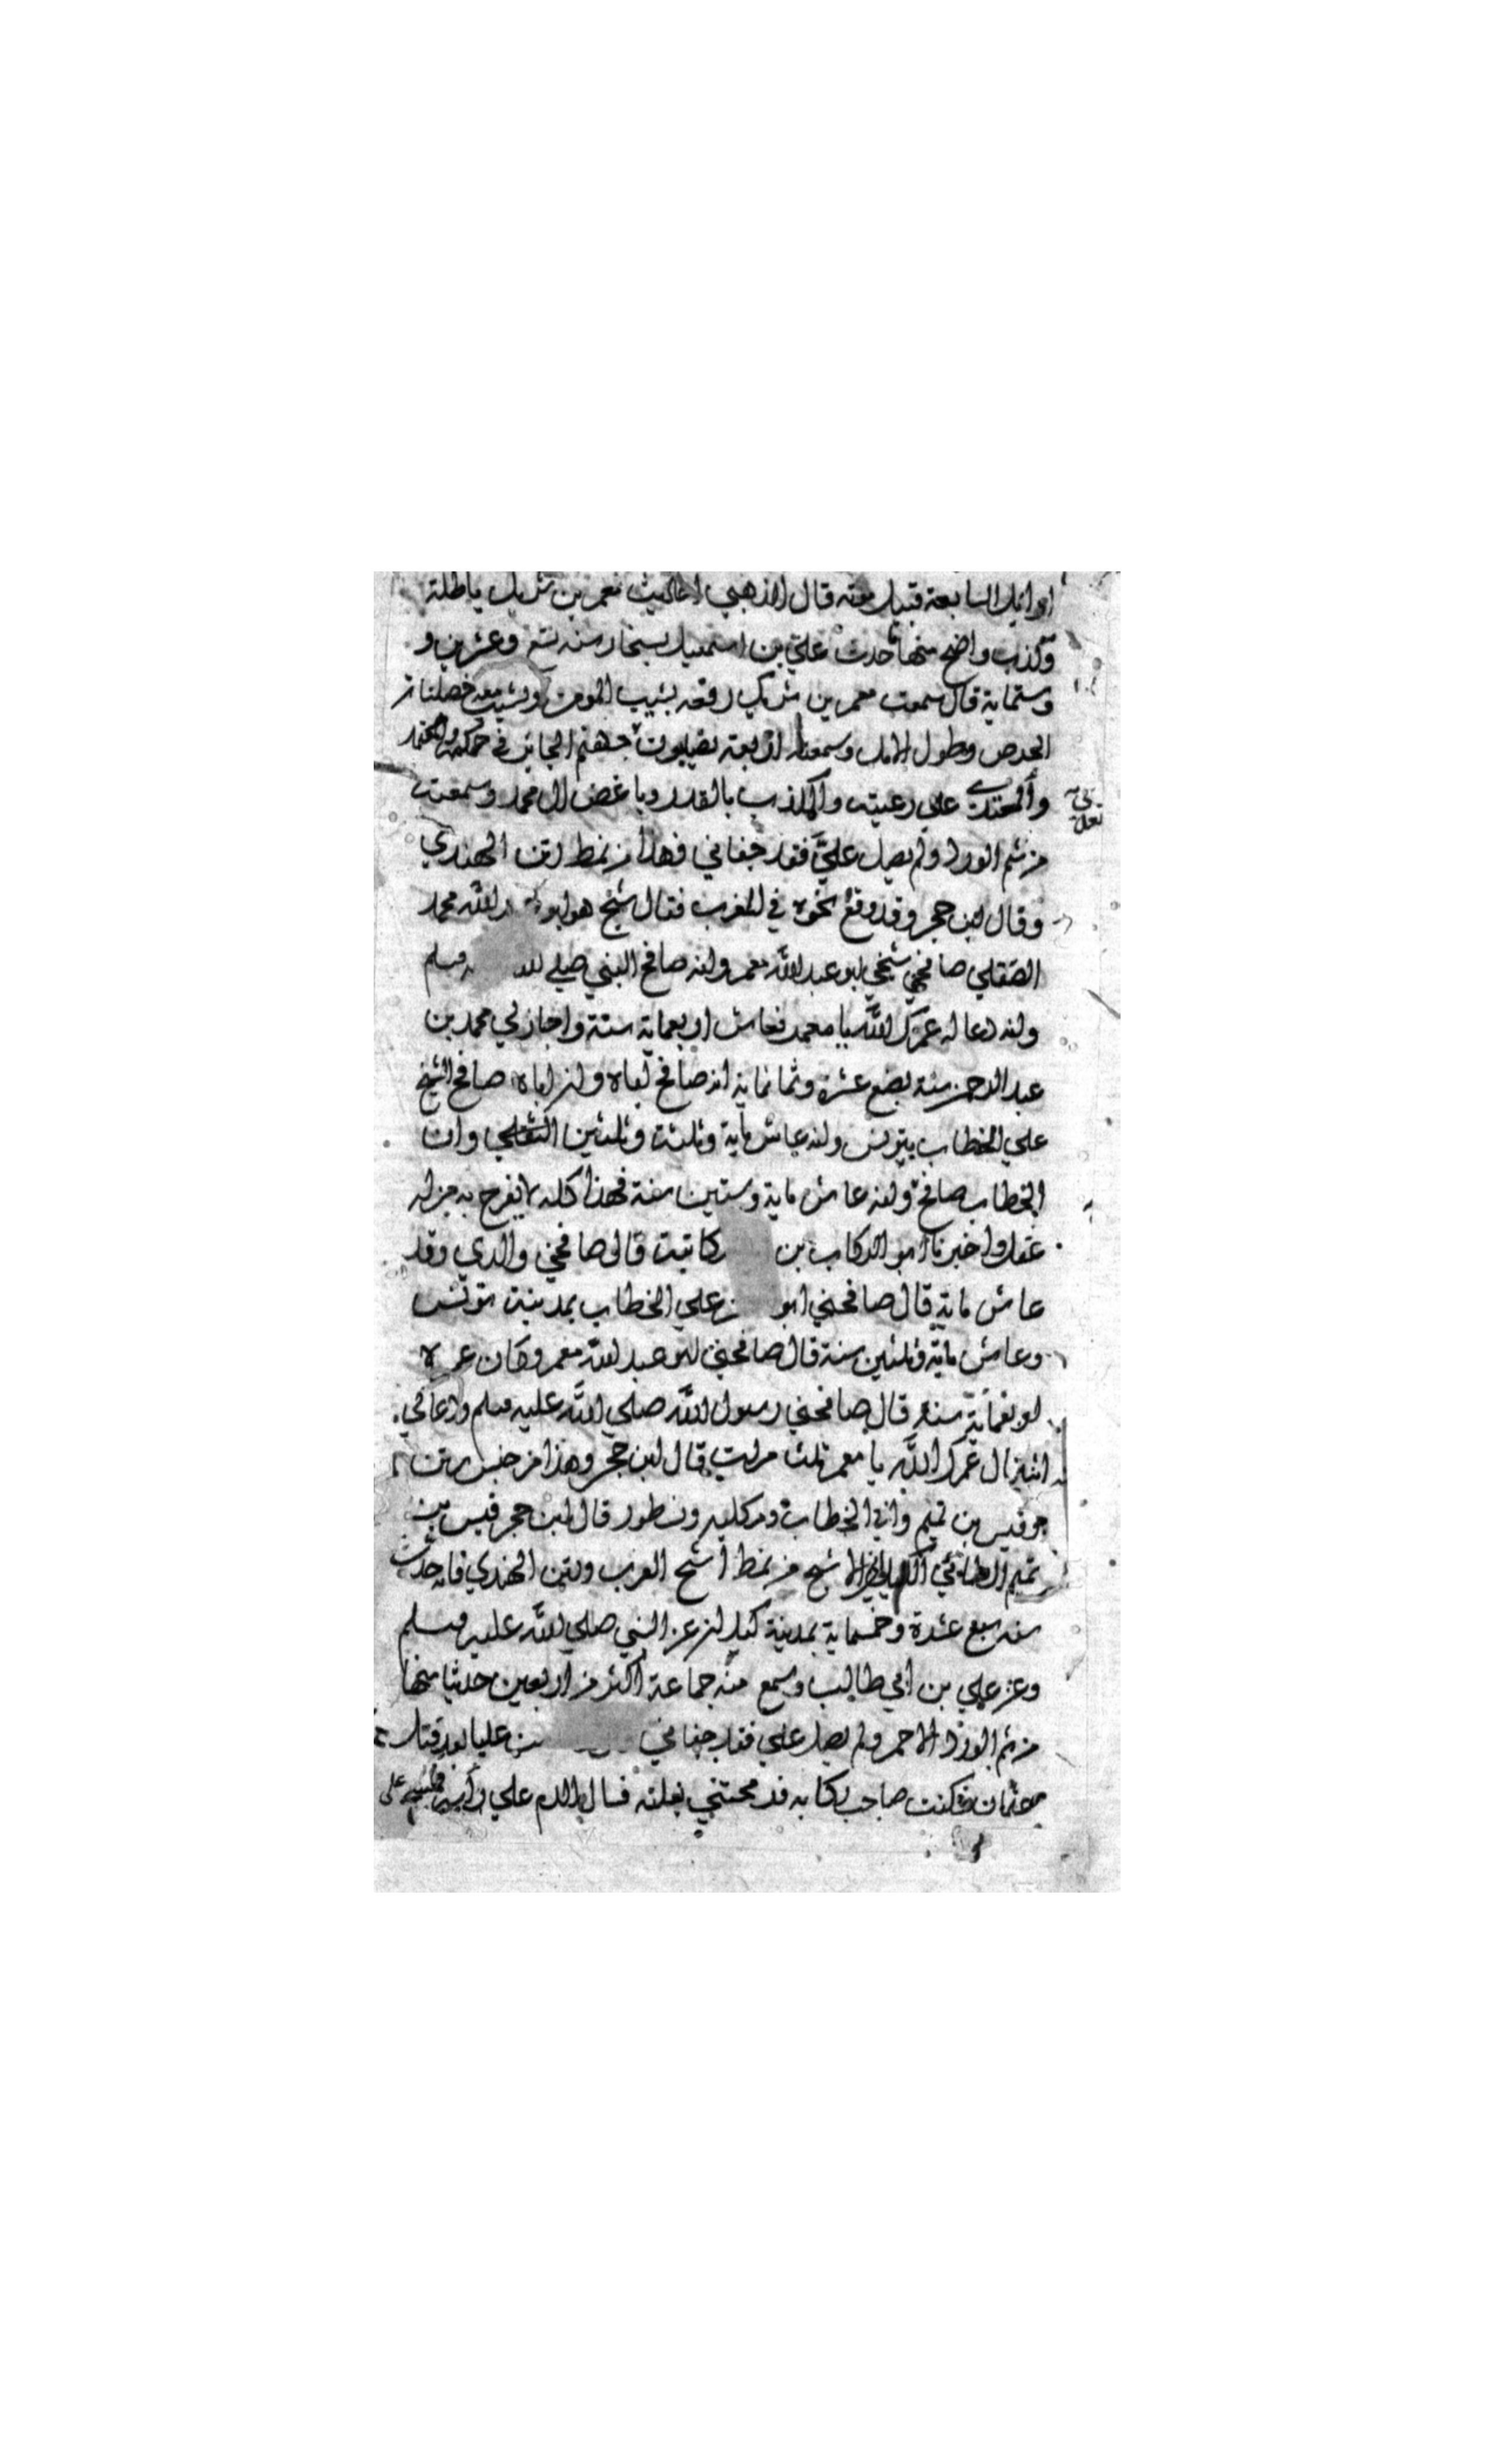 اوايل السابعة قبيل موته قال الذهبي احاديث معمر بن شريك باطلة
وكذب واضح منها حدث علي بن اسمعيل بسنجار سنه تسع وعشرين و
وستماية قال سمعت معمر بن شريك رفعه يشيب المومن ويشيب معه خصلتان
الحرص وطول الامل وسمعنا اربعة يصلبون جهنم الجائر في حكمه
والمعتدي علي رعيته والمكذب بالقدر وباغض ال محمد وسمعت
من شم الورد ولم يصل عليَّ فقد جفاني فهذا من نمط رتن الهندي
وقال ابن حجر وقد وقع نحوه في المغرب فقال شيخ هو ابو الله محمد
الصقلي صافحني شيخي ابو عبد الله معمر وانه صافح النبي صلي لله وسلم
وانه دعا له عمرك الله يا معمر فعاش اربعماية سنة واجاز لي محمد بن
عبد الرحمن سنة بضع عشرة وثمانماية انه صافح اباه وان اباه صافح الشيخ
علي الخطاب بتونس وانه عاش ماية وثلثة وثلثين وان
الخطاب صافح وانه عاش ماية وستين سنة فهذا كله لا يفرح به من له
عقل واخبرنا ابو البركات بن كاتبت قال صافحني والدي وقد
عاش ماية قال صافحني ابو علي الخطاب بمدينة تونس
وعاش ماية وثلثين سنة قال صافحني ابو عبد الله معمر وكان عمره
اربعماية سنة قال صافحني رسول الله صلي الله عليه وسلم ودعا لي
قال عمرك الله يا معمر ثلث مرات قال ابن حجر وهذا من جنس رتن
وقيس بن تميم وابي الخطاب ومكلبه ونسطور قال ابن حجر قيس بن
تميم الطائي الاشج من نمط اشج الغرب ورتن الهندي فانه حدث
سنه سبع عشرة وخمسماية بمدينة كيلان عن النبي صلي لله عليه وسلم
وعن علي بن ابي طالب وسمع منه جماعة اكثر من اربعين حديثا منها
من شم الورد الاحمر ولم يصل علي فقد جفاني عليا بعد قتل
عثمان فكنت صاحب ركابه فرمحتني بغلته فسال الدم علي راسي فمسح على